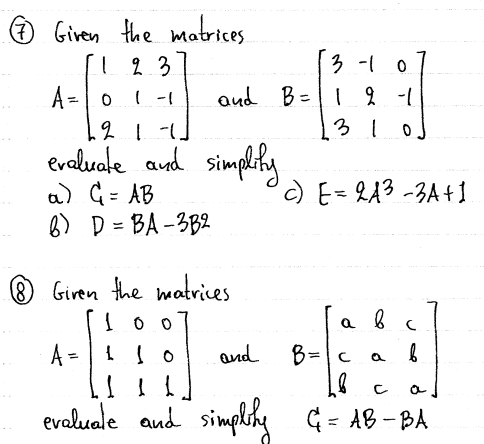 ⑦ Given the matrices
A = [1 2 3; 0 1 -1; 2 1 -1] and B = [3 -1 0; 1 2 -1; 3 1 0]
evaluate and simplify
a) G = AB c) E = 2A³ - 3A + 1
b) D = BA - 3B²
⑧ Given the matrices
A = [1 0 0; 1 1 0; 1 1 1] and B = [a b c; c a b; b c a]
evaluate and simplify G = AB - BA